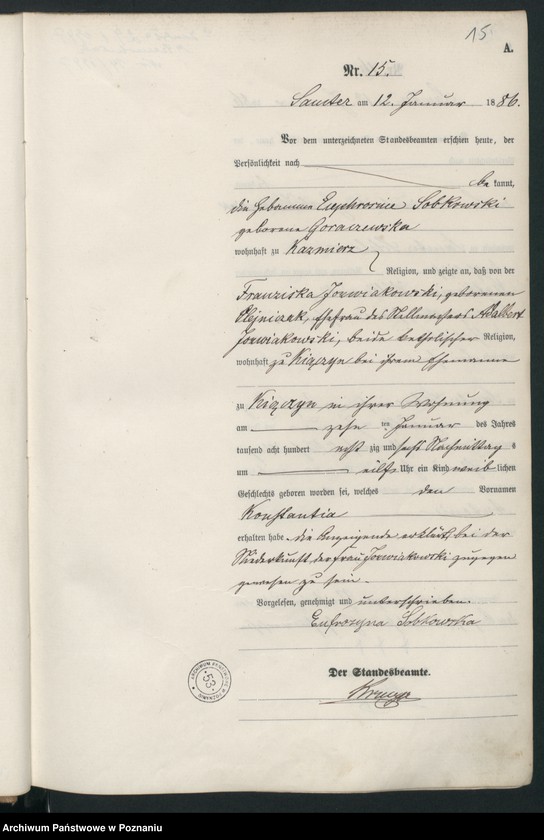 15
A.
Nr. 15.
Samter am 12. Januar 1886.
Vor dem unterzeichneten Standesbeamten erschien heute, der
Persönlichkeit nach
bekannt,
die Hebamme Euphrosine Sobkowski
geborene Goraczewska
wohnhaft zu Kazmierz
Religion, und zeigte an, daß von der
Franziska Jozwiakowski, geborenen
Olejniczak, Ehefrau des Stellmachers Adalbert
Jozwiakowski, beide katholischer Religion,
wohnhaft zu Kiączyn bei ihrem Ehemanne
zu Kiączyn in ihrer Wohnung
am zehn ten Januar des Jahres
tausend acht hundert acht zig und sechs Nachmittag s
um eilf Uhr ein Kind weib lichen
Geschlechts geboren worden sei, welches den Vornamen
Konstantia
erhalten habe. die Anzeigende erklärt, bei der
Niederkunft der Frau Jozwiakowski zugegen
gewesen zu sein.
Vorgelesen, genehmigt und unterschrieben.
Eufrozyna Sobkowska
Der Standesbeamte.
ARCHIWUM PAŃSTWOWE W POZNANIU
53
Archiwum Państwowe w Poznaniu